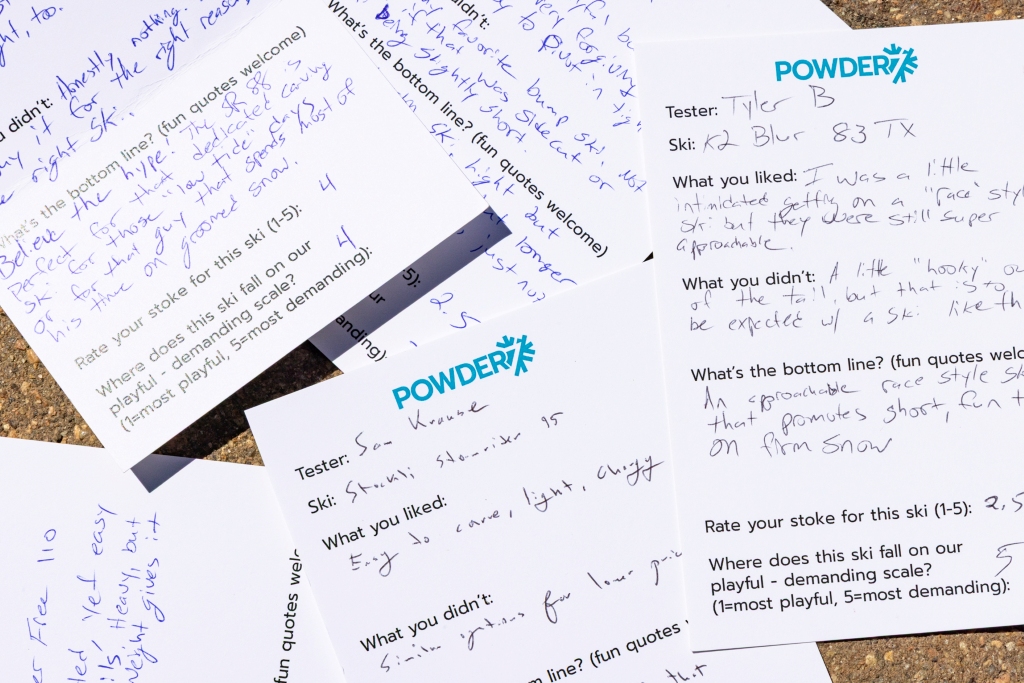 ht, too.
Honestly nothing.
for the right reason
right ski.
What's the bottom line? (fun quotes welcome)
Believe the hype. The SR 88 is
perfect for that dedicated carving
ski for those "low tide" days
or for that guy that spends most of
his time on groomed snow.
Rate your stoke for this ski (1-5): 4
Where does this ski fall on our
playful - demanding scale?
(1=most playful, 5=most demanding). 4
very forgiving
to pivot in tig
dn't:
if that was sidecut or
being slightly short.
favorite bump ski,
What's the bottom line? (fun quotes welcome)
but
longer
just not
5):
2.5
our
anding):
POWDER7
Tester: Tyler B
Ski: K2 Blur 83 TX
What you liked: I was a little
intimidated getting on a "race" styl
ski but they were still super
approachable.
What you didn't: A little "hooky" ou
of the tail, but that is to
be expected w/ a ski like th
What's the bottom line? (fun quotes welc
An approachable race style sk
that promotes short, fun t
on firm snow
Rate your stoke for this ski (1-5): 2.5
Where does this ski fall on our
playful - demanding scale?
(1=most playful, 5=most demanding): 5
POWDER7
Tester: Sam Krause
Ski: Stockli Stormrider 95
What you liked:
Easy to carve, light, chargy
What you didn't:
Similar options for lower pric
line? (fun quotes
that
Free 110
Yet easy
Heavy, but
weight gives it
fun quotes wel